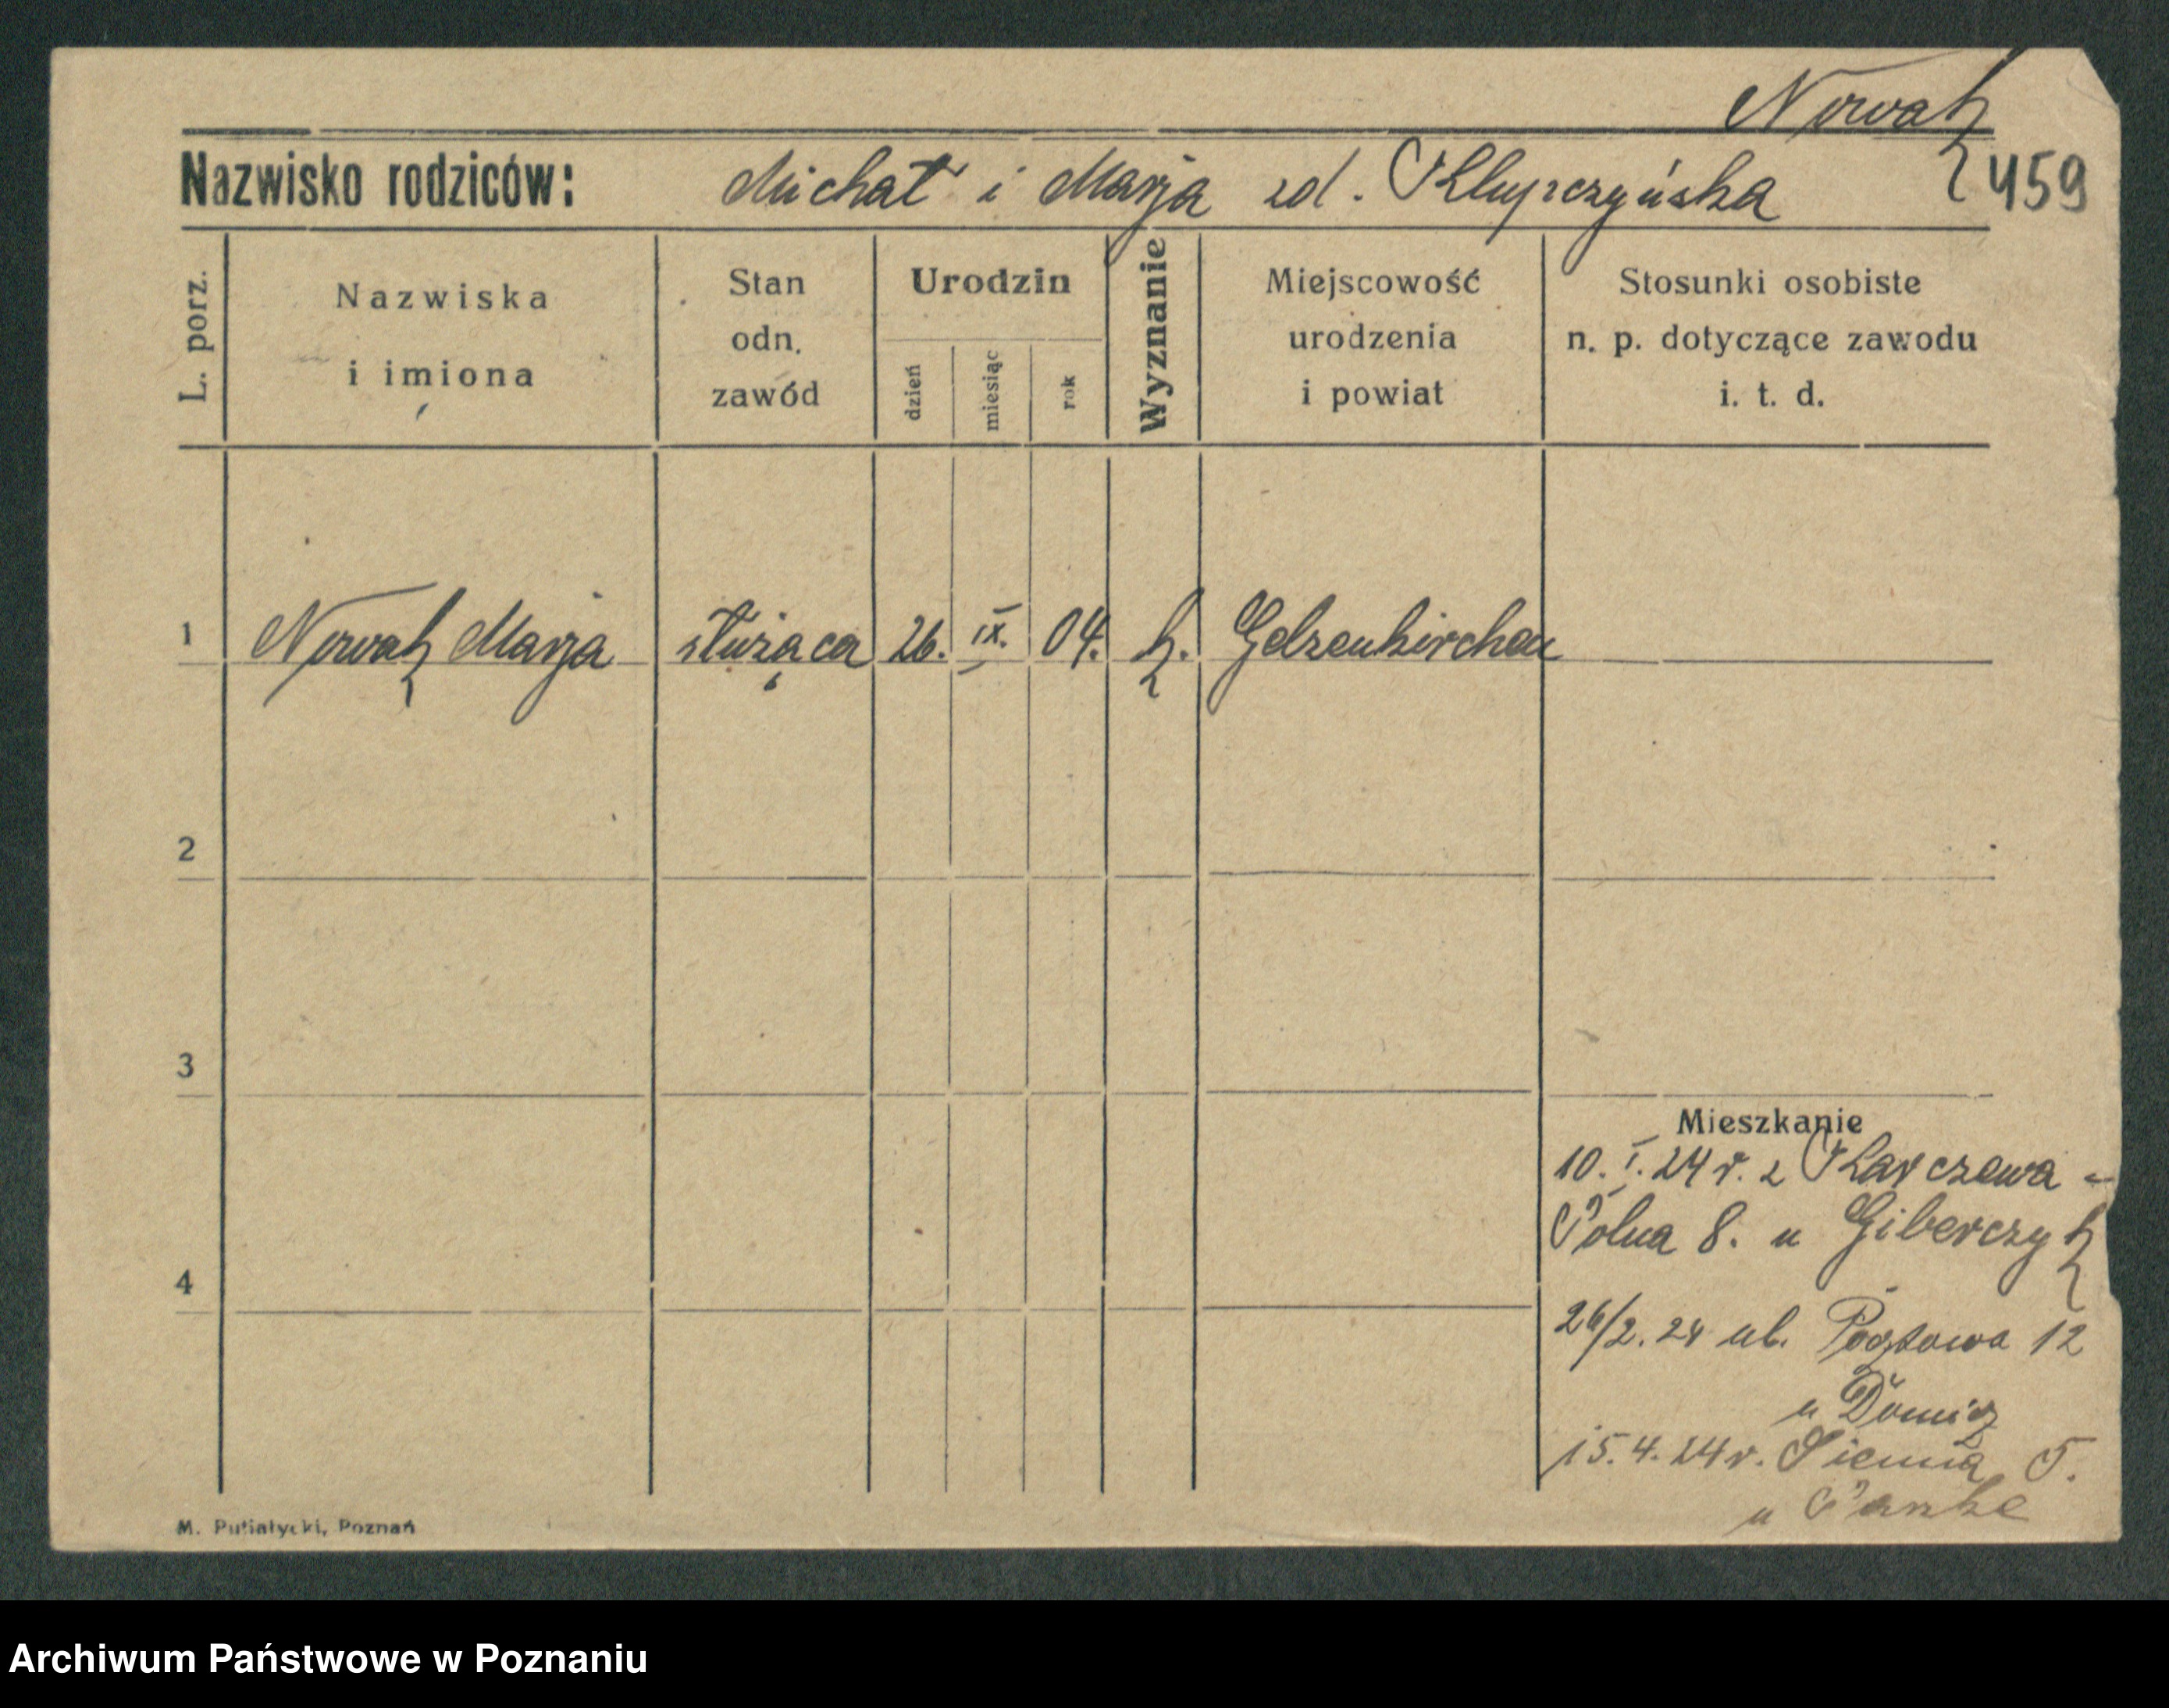 Nowak
Nazwisko rodziców: Michał i Marja zd. Klupczyńska 459
L. porz.
Nazwiska
i imiona
Stan
odn.
zawód
Urodzin
dzień
miesiąc
rok
Wyznanie
Miejscowość
urodzenia
i powiat
Stosunki osobiste
n. p. dotyczące zawodu
i. t. d.
1 Nowak Marja służąca 26. IX. 04. k. Gelzenkirchen
2
3
Mieszkanie
10. I. 24 r. z Karczewa -
Polna 8. u Giberczyk
4
26/2. 24 ul. Pocztowa 12
u
15. 4. 24 r. Sienna 5.
u
M. Putiatycki, Poznań
Archiwum Państwowe w Poznaniu